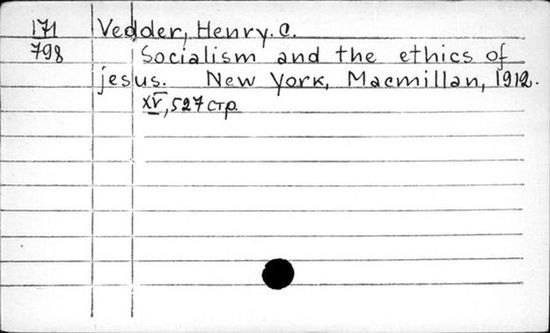 171 Vedder, Henry. C.
798 Socialism and the ethics of
jesus. New York, Macmillan, 1912.
XV, 527 стр.